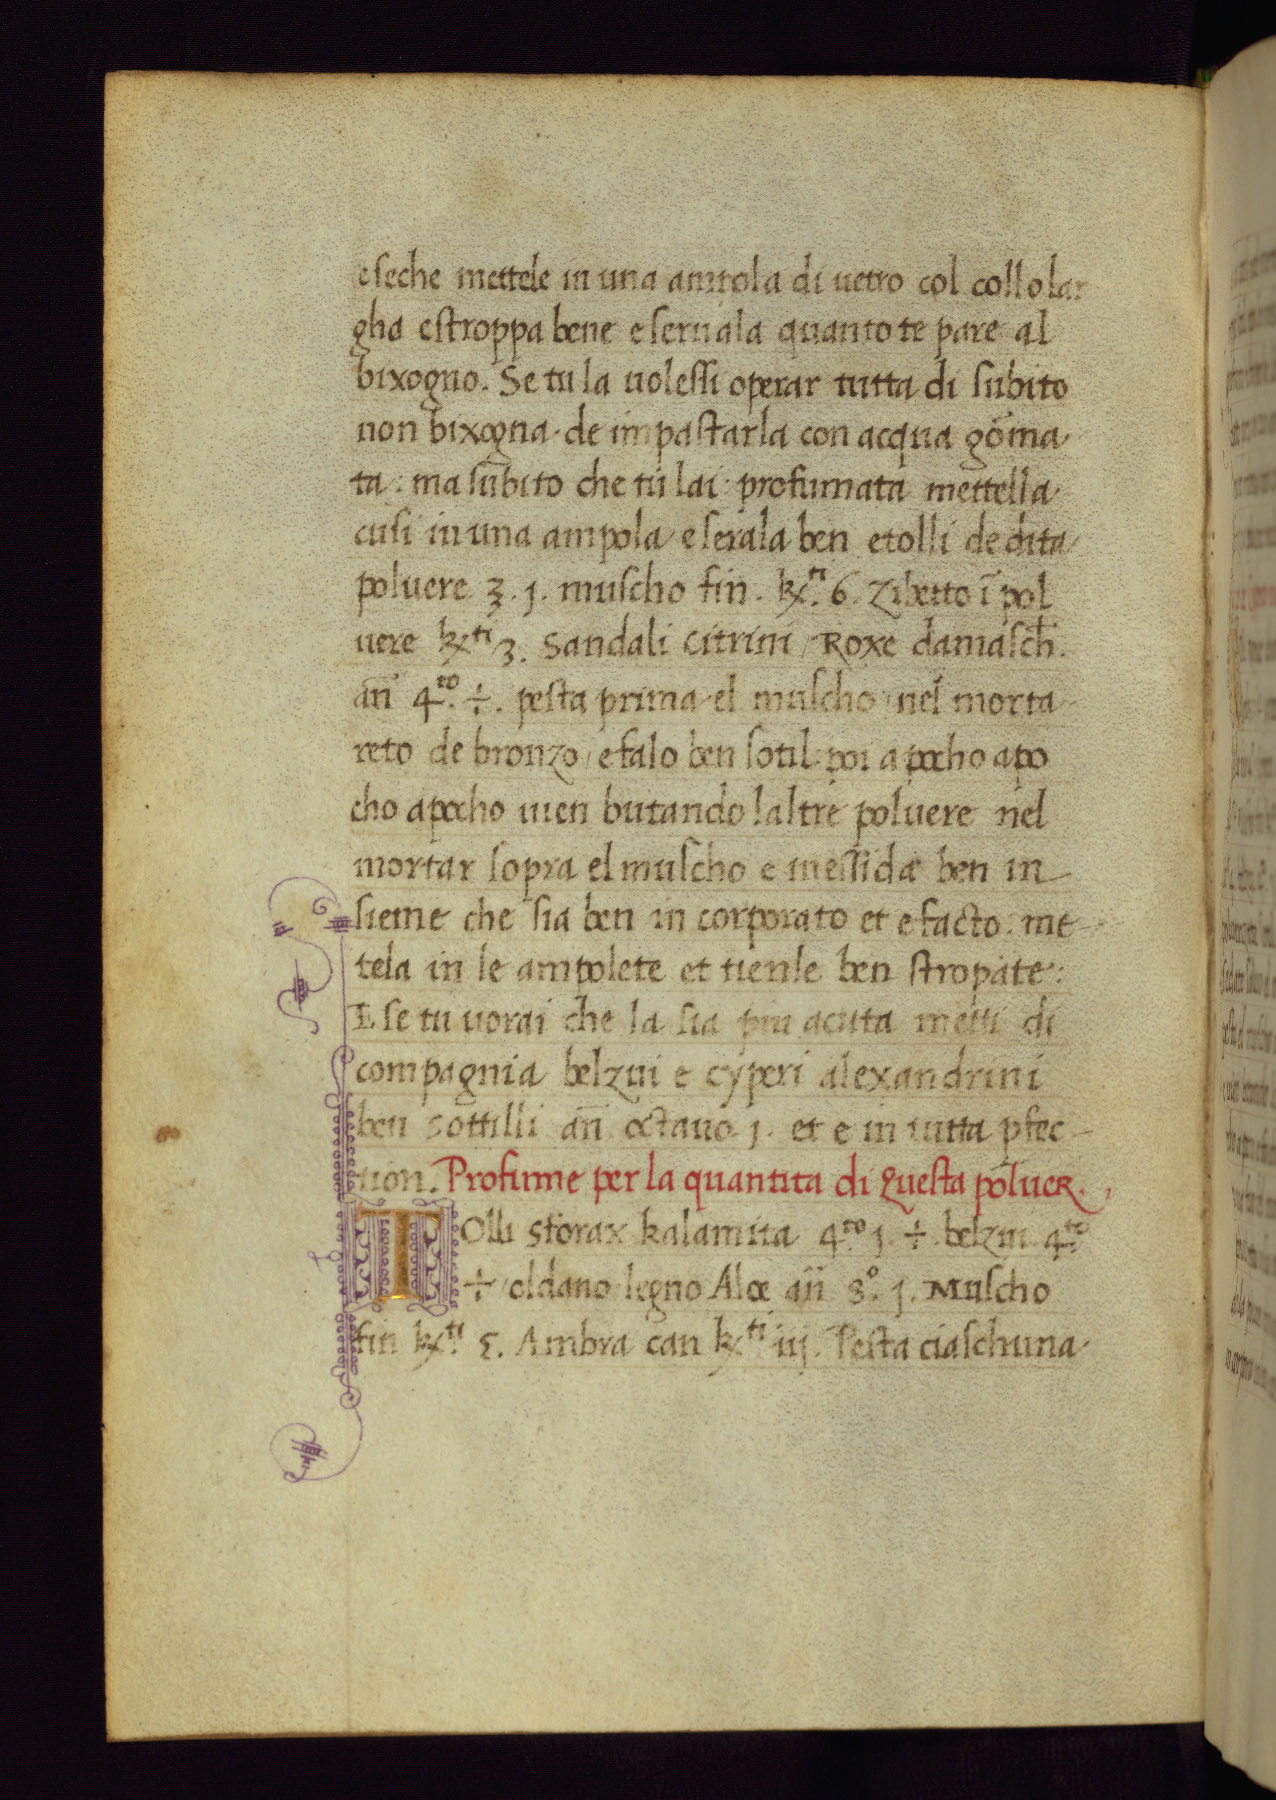 e seche mettele in una ampola di uetro col collo lar
gho e stroppa bene e seruala quanto te pare al
bixogno. Se tu la uolessi operar tutta di subito
non bixogna de impastarla con acqua gōma
ta: ma subito che tu lai profumata mettella
cusi in una ampola e serala ben e tolli de dita
poluere ʒ. j. muscho fin. kᵗⁱ. 6. Zibetto ī pol
uere kᵗⁱ 3. Sandali citrini / Roxe damasch̄.
an̄ 4ᵗᵒ. ÷. pesta prima el muscho nel morta
reto de bronzo / e falo ben sotil: poi a pocho a po
cho a pocho uien butando laltre poluere nel
mortar sopra el muscho e messida ben in
sieme che sia ben in corporato et e facto: me
tela in le ampolete et tienle ben stropate:
E se tu uorai che la sia piu acuta metti di
compagnia belzui e cyperi alexandrini
ben sottilli an̄ octauo j. et e in tutta pfec
tion. Profume per la quantita di Questa poluer.
TOlli storax kalamita 4ᵗᵒ. j. ÷ belzui 4ᵗᵒ.
÷ oldano legno Aloe an̄ 3°. j. Muscho
fin kᵗⁱ. 5. Ambra can kᵗⁱ iij. Pesta ciaschuna